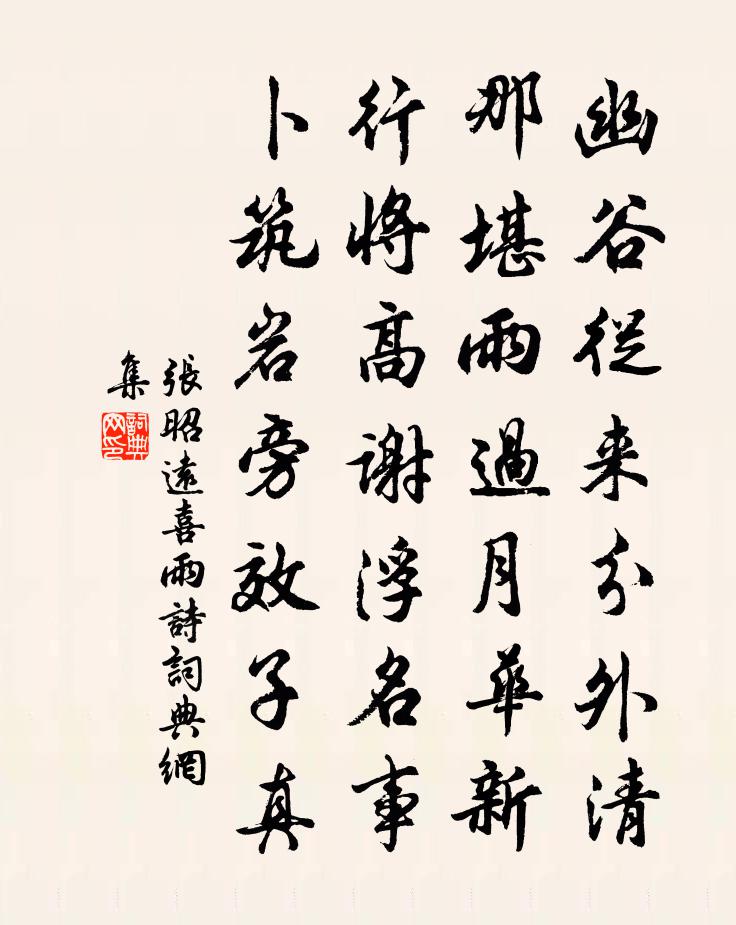 幽谷從来分外清
那堪雨過月華新
行將高謝浮名事
卜筑岩旁效子真
張昭遠喜雨詩詞典網
集
詞典
网印